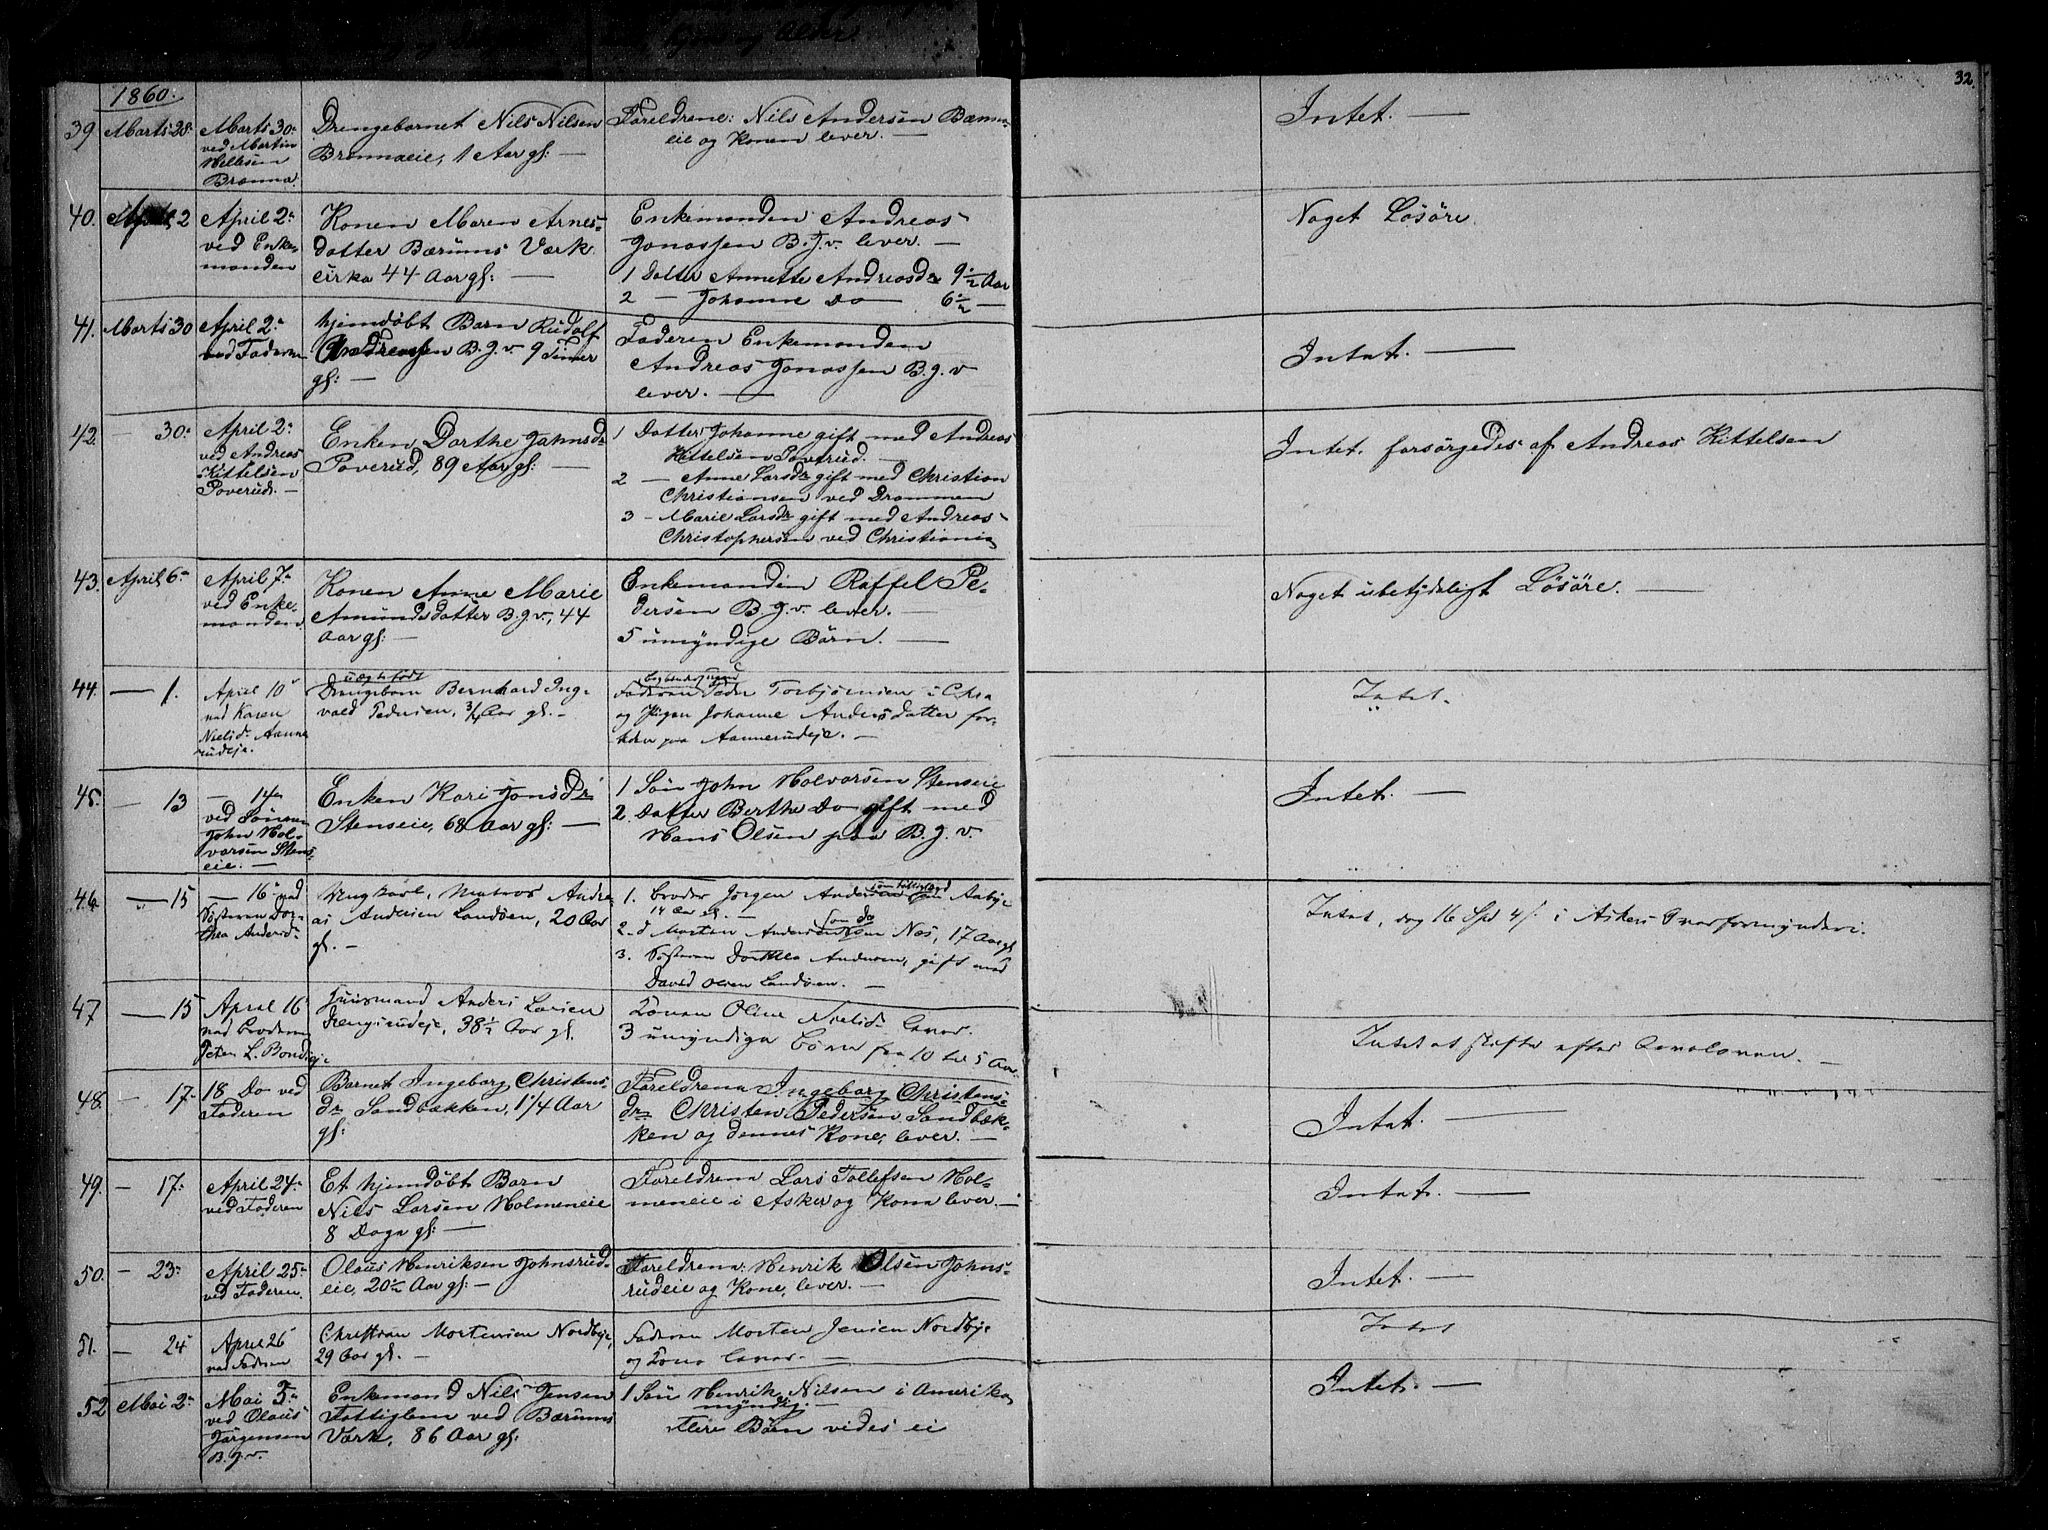 32
1860.
39. Marts 28. Marts 30. ved Martin Nilsen Brænna.
Drengebarnet Nils Nilsen
Brænnaeie, 1 Aar gl: —
Foreldrene: Nils Andersen Brænna-
eie og Konen lever. —
Intet. —
40. April 2 April 2. ved Enke-
manden
Konen Maren Arnes-
datter Bærums Værk.
cirka 44 Aar gl: —
Enkemanden Andreas
Jonassen B.J.v. lever. —
1 Datter Annette Andreasdr 9 1/2 Aar
2 — Johanne Do — 6 1/2 —
Noget Løsøre.
41. Marts 30 April 2.
ved Faderen
hjemdøbt Barn Rudolf
Andreassen B.J.v. 9 Timer
gl: —
Faderen Enkemanden
Andreas Jonassen B.J.v
lever. —
Intet. —
42. — 30. April 2.
ved Andreas
Kittelsen
Poverud. —
Enken Dorthe Johnsdr
Poverud, 89 Aar gl: —
1 Datter Johanne gift med Andreas
Kittelsen Poverud. —
2 — Anne Larsdr gift med Christian
Christiansen ved Drammen
3 — Marie Larsdr gift med Andreas
Christophersen ved Christiania
Intet. forsørgedes af Andreas Kittelsen
43. April 6 April 7.
ved Enke-
manden.
Konen Anne Marie
Amundsdatter B.J.v., 44
Aar gl: —
Enkemanden Raffel Pe-
dersen B.J.v. lever. —
5 umyndige Børn. —
Noget ubetydeligt Løsøre. —
44. — 1. April 10
ved Karen
Nielsd. Aanne-
rudeje.
uægte født
Drengebarn Bernhard Ing-
vald Pedersen, 3/4 Aar gl. —
Faderen Peder Torbjørnsen i Chra
og Pigen Johanne Andersdatter for-
tiden paa Aannerudeje. —
Intet.
45. — 13 — 14
ved Sønnen
John Hal-
vorsen Stens-
eie. —
Enken Kari Jonsdr
Stenseie, 68 Aar gl: —
1 Søn John Halvorsen Stenseie
2. Datter Berthe Do gift med
Hans Olsen paa B.J.v.
Intet. —
46. — 15 — 16 ved
Søsteren Dor-
thea Andersd.
Ungkarl, Matros Andre-
as Andersen Landøen, 20 Aar
gl. —
1. Broder Jørgen Andersen Aabye
14 Aar gl. —
2. d Morten Andersen Næs, 17 Aar gl
3. Søsteren Dorthea Andersen, gift med
David Olsen Landøen. —
Intet, dog 16 Spd 4 / i Askers Overformynderi.
47 — 15 April 16
ved Broderen
Peter L. Bondeje
Huusmand Anders Larsen
38 1/2 Aar gl.
Konen Oline Nielsd. lever.
3 umyndige Børn fra 10 til 5 Aar.
Intet at skifte efter —
48. — 17 18 Do ved
Faderen
Barnet Ingeborg Christens-
dr Sandbækken, 1 1/4 Aar
gl:
Foreldrene Ingeborg Christens-
dr Christen Pedersen Sandbæk-
ken og dennes Kone, lever. —
Intet. —
49. — 17. April 24.
ved Faderen
Et hjemdøbt Barn
Nils Larsen Holmeneie
8 Dage gl: —
Foreldrene Lars Tollefsen Hol-
meneie i Asker og Kone lever. —
Intet. —
50. — 23. April 25.
ved Faderen.
Olaus Henriksen Johnsrud-
eie, 20 Aar gl: —
Foreldrene: Henrik Olsen Johns-
rudeie og Kone, lever. —
Intet. —
51. — 24 April 26
ved Faderen
Christian Mortensen Nordbye,
29 Aar gl. —
Faderen Morten Jensen Nordbye
og Kone lever. —
Intet
52 Mai 2. Mai 5.
ved Olaus
Jørgensen
B.J.v.
Enkemand Nils Jensen
Fattiglem ved Bærums
Værk, 86 Aar gl:
1 Søn Henrik Nilsen i Amerika
myndig. —
Flere Børn vides ei
Intet. —